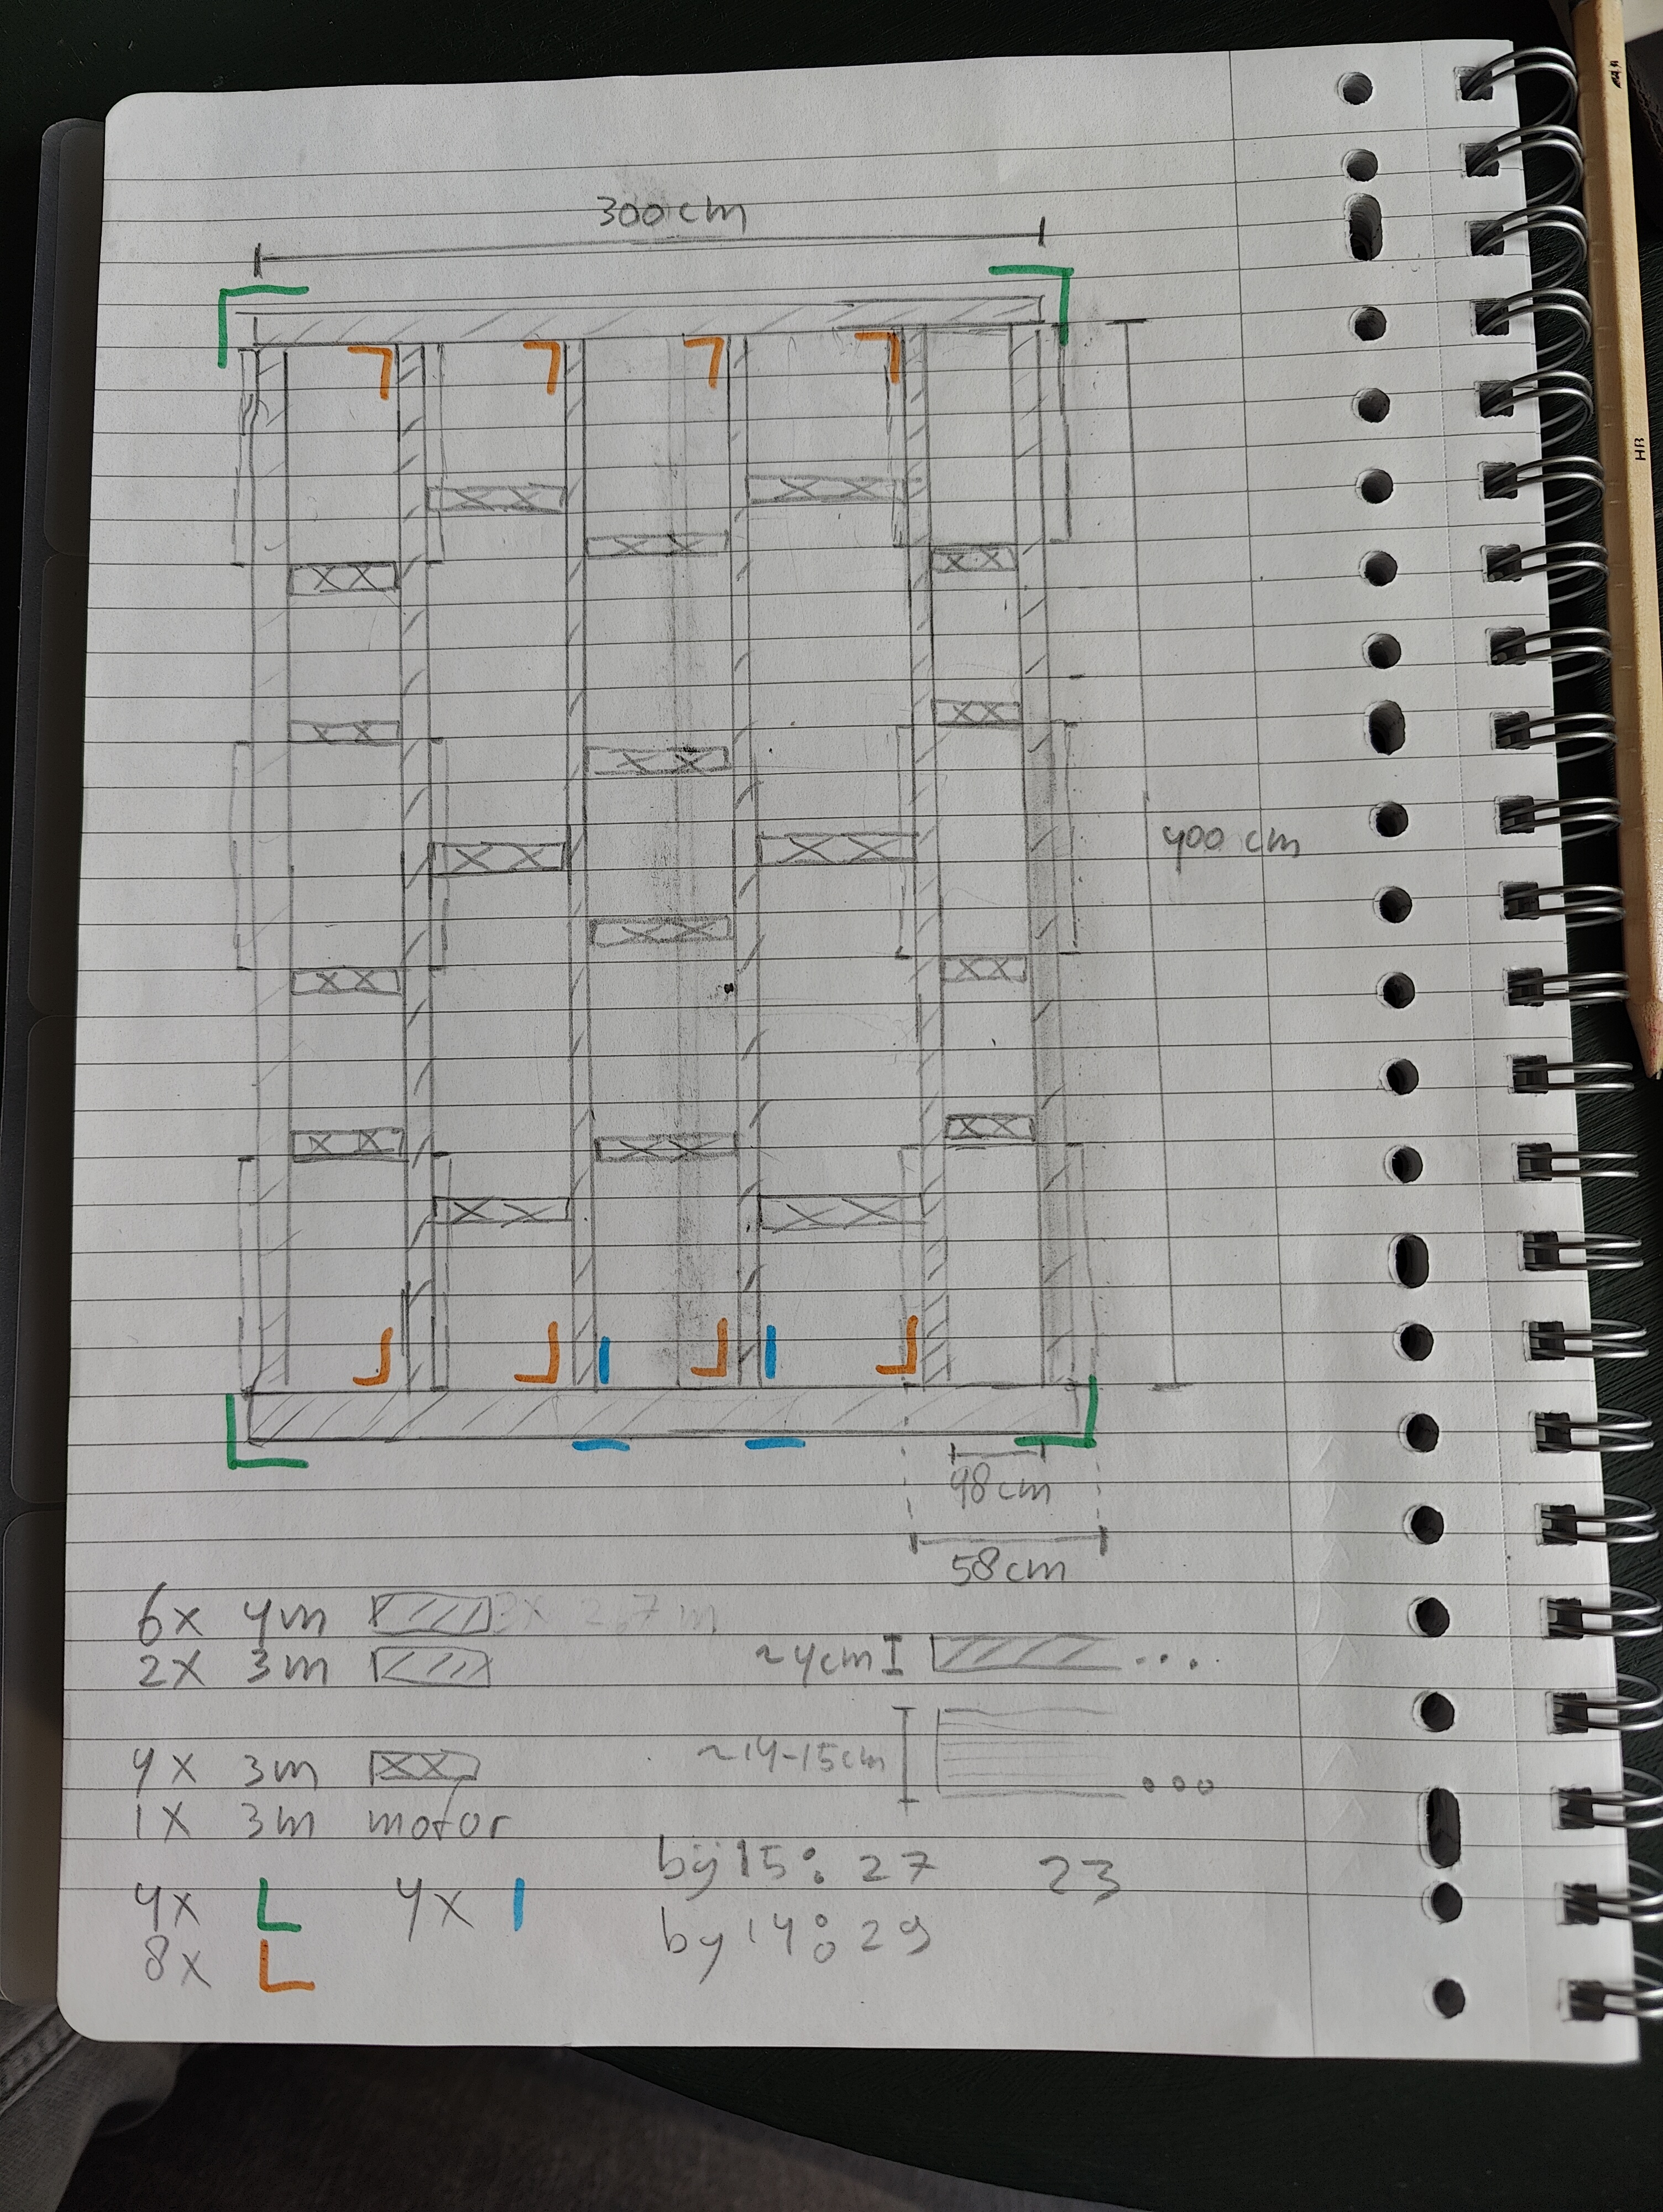 300 cm
400 cm
48cm
58cm
6x 4m 3x 2,67 m
2x 3m
~4cm ...
4x 3m
~14-15cm ...
1x 3m motor
by 15: 27 23
4x 4x
by 14: 29
8x
HB